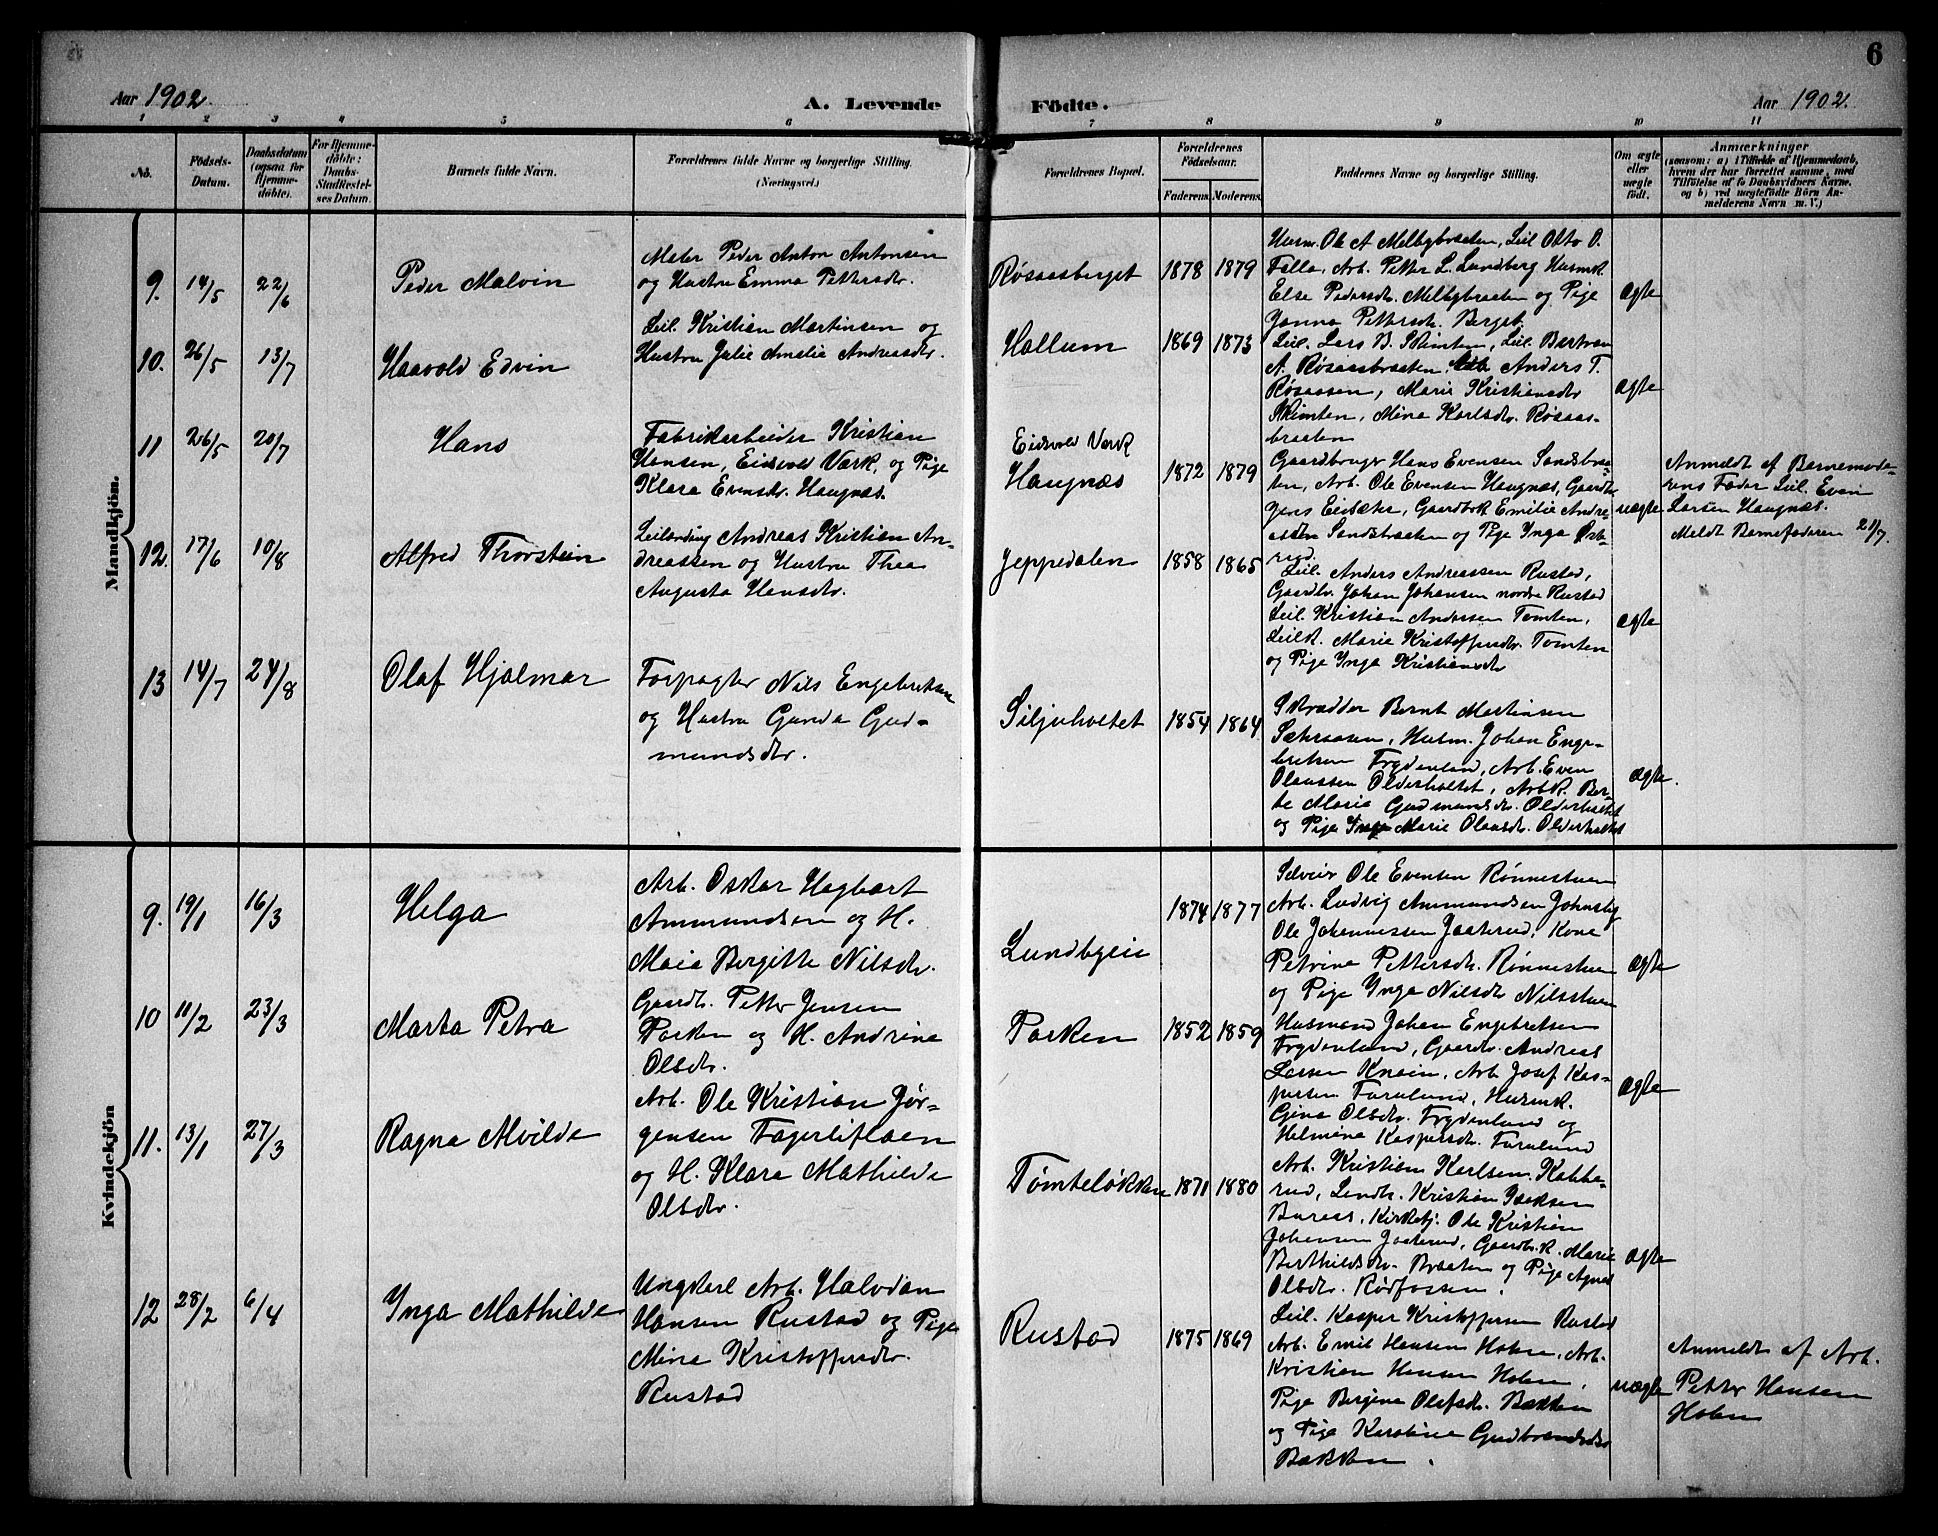 6
Aar 1902
A. Levende
Födte.
Aar 1902.
1 2 3 4 5 6 7 8 9 10 11
No.
Födsels-
Datum.
Daabsdatum
(ogsaa for
Hjemme-
döbte).
For Hjemme-
döbte:
Daabs-
Stadfæstel-
ses Datum.
Barnets fulde Navn.
Forældrenes fulde Navne og borgerlige Stilling.
(Næringsvei.)
Forældrenes Bopæl.
Forældrenes
Födselsaar.
Faderens. Moderens.
Faddernes Navne og borgerlige Stilling.
Om ægte
eller
uægte
födt.
Anmærkninger
(saasom: a) i Tilfælde af Hjemmedaab,
hvem der har forrettet samme, med
Tilföielse af to Daabsvidners Navne,
og b) ved uægtefödte Börn An-
melderens Navn m. V.)
Mandkjön.
9. 14/5 22/6 Peder Malvin
Maler Peder Anton Antonsen
og Hustru Emma Pettersdr.
Røsaasberget 1878 1879
Husm. Ole A Melbybraaten, Leil Otto O.
Falla, Arb. Petter L. Lundberg Husmk.
Else Pedersdr. Melbybraaten og Pige
Janna Pettersdr. Berget.
ægte
10. 26/5 13/7 Haavald Edvin
Leil. Kristian Martinsen og
Hustru Julie Amalie Andreasdr.
Hallum 1869 1873
Leil. Lars B. Skimten, Leil. Bertran
A. Røsaasbraaten, Anders T.
Røsaasen, Marie Kristiansdr
Skimten, Mina Karlsdr. Røsaas-
braaten
ægte
11 26/5 20/7 Hans
Fabrikarbeider Kristian
Hansen, Eidsvold Værk, og Pige
Klara Evensdr. Haugnæs.
Eidsvold Værk
Haugnæs 1872 1879
Gaardbruger Hans Evensen Sandsbraa-
ten, Arb. Ole Evensen Haugnæs, Gaardbr
Jens Eisbakke, Gaardbrk Emilie Andre-
Sandsbraaten og Pige Inga
uægte
Anmeldt af Barnemode-
rens Fader Leil. Even
Larsen Haugnæs.
Meldt Barnefaderen 21/7.
12. 17/6 10/8 Alfred Thorstein
Leilænding Andreas Kristian An-
dreassen og Hustru Thea
Augusta Hansdr.
Jeppedalen 1858 1865
Leil. Anders Andreassen Rustad,
Gaardbr. Johan Johansen nordre Rustad
Leil. Kristian Andersen Tomten,
Leilk. Marie Kristoffersdr. Tomten
og Pige Inga Kristiansdr
ægte
13 14/7 24/8 Olaf Hjalmar
Forpagter Nils Engebretsen
og Hustru Gunda Gud-
mundsdr.
Siljuholtet 1854 1864
Skrædder Bernt Martinsen
Sætraasen, Husm. Johan Enge-
bretsen Frydenlund, Arb. Even
Olaussen Olderholtet, Arbk. Ber-
te Maria Gudmundsdr. Olderholtet
og Pige Inga Marie Olausdr. Olderholtet
ægte.
Kvindekjön
9. 19/1 16/3 Helga
Arb. Oskar Hagbart
Ammundsen og H.
Maia Bergitte Nilsdr.
Lundbyeie 1874 1877
Selveier Ole Evensen Rønnestuen
Arb. Ludvig Ammundsen
Ole Johannessen Jaaterud, Kone
Petrine Pettersdr. Rønnestuen
og Pige Inga Nilsdr Nilsstuen
ægte
10 11/2 23/3 Marta Petra
Gaardbr. Petter Jensen
Parken og H. Andrine
Olsdr.
Parken 1852 1859
Husmand Johan Engebretsen
Frydenlund, Gaardbr. Andreas
Larsen Knain, Arb Josef Kas-
persen Furulund, Husmk.
Gina Olsdr. Frydenlund og
Helmine Kaspersdr. Furulund
ægte
11. 13/1 27/3 Ragna Mvilde
Arb. Ole Kristian Jør-
gensen Fagerliflaen
og H. Klara Mathilde
Olsdr.
Tømteløkken 1871 1880
Arb. Kristian Karlsen Kabbe-
rud, Landh. Kristian Isaksen
Buraas, Kirketj. Ole Kristian
Johansen Jaaterud, Gaardbr.k. Marie
Berthildsdr. Braaten og Pige Agnes
Olsdr. Rødfossen.
ægte
12 28/2 6/4 Inga Mathilde
Ungkarl Arb. Halvdan
Hansen Rustad og Pige
Mina Kristoffersdr.
Rustad
Rustad 1875 1869
Leil. Kasper Kristoffersen Rustad
Arb. Emil Hansen Holen, Arb.
Kristian Hansen Holen,
Pige Bergine Olafsdr. Bakken
og Pige Karoline Gudbrandsdr
Bakken.
uægte
Anmeldt af Arb.
Petter Hansen
Holen